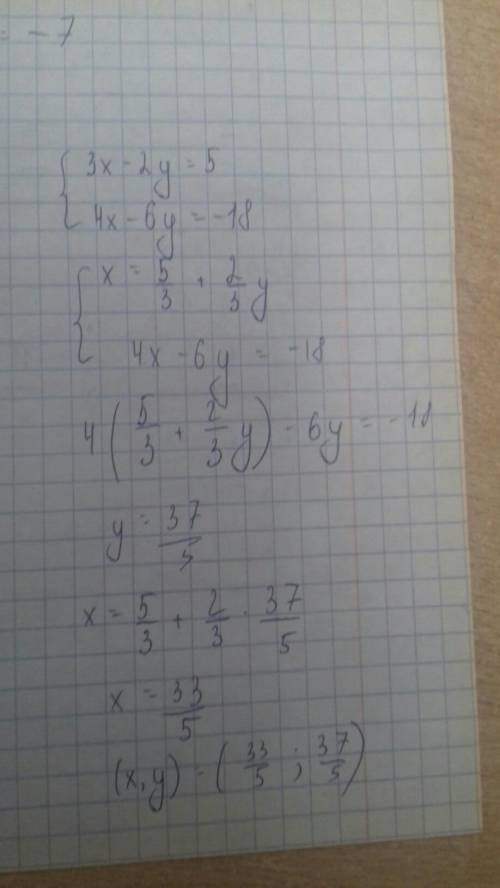 = -7
3x - 2y = 5
4x - 6y = -18
x = 5/3 + 2/3 y
4x - 6y = -18
4(5/3 + 2/3 y) - 6y = -18
y = 37/5
x = 5/3 + 2/3 · 37/5
x = 33/5
(x, y) - (33/5 ; 37/5)